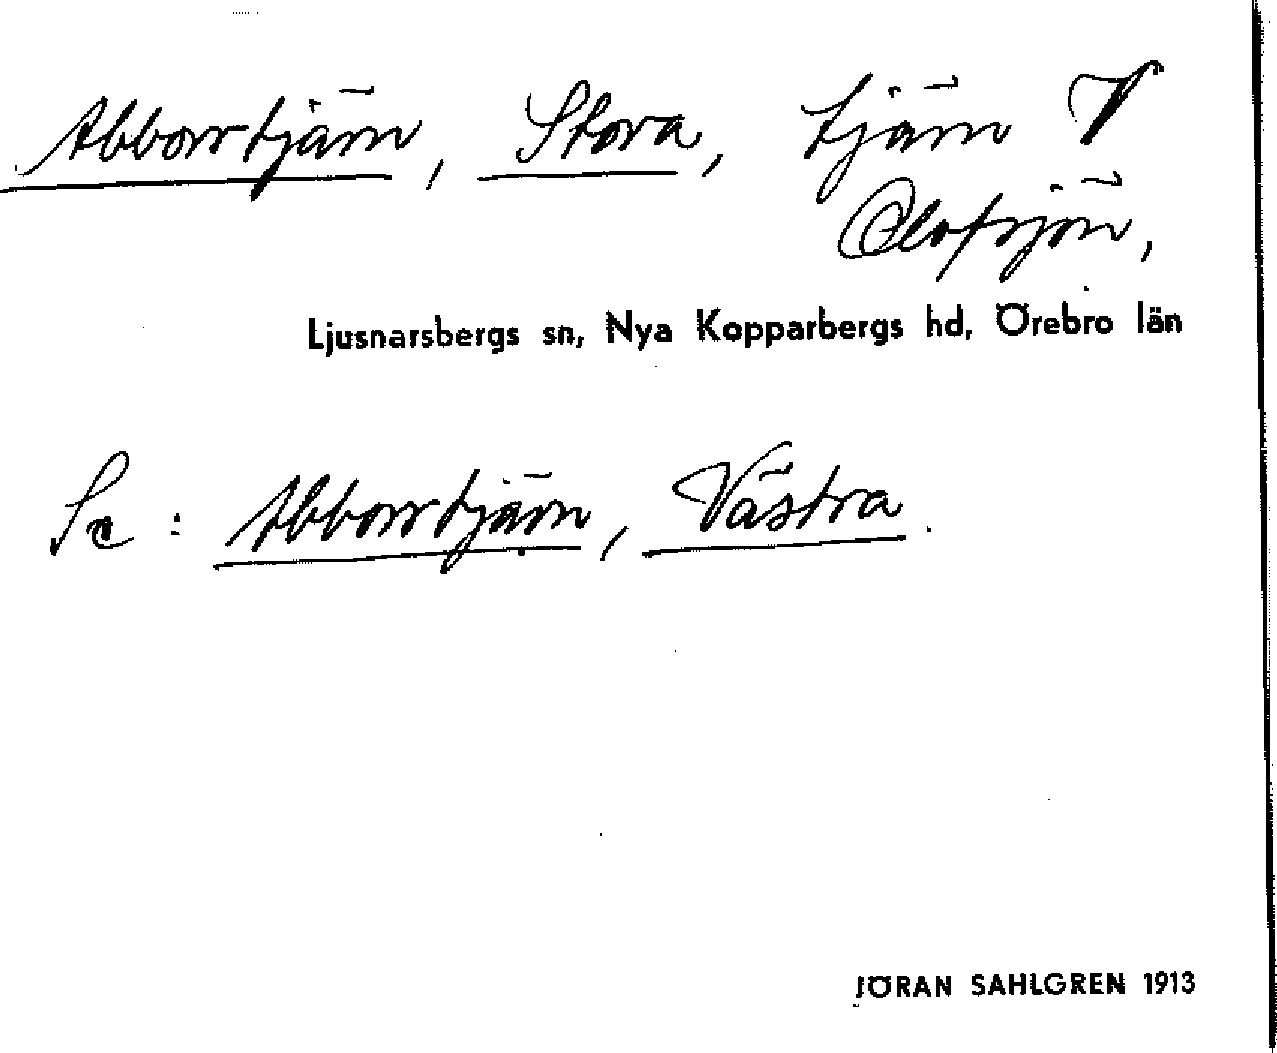 Abborrtjärn, Stora, tjärn V
Olofsjön,
Ljusnarsbergs sn, Nya Kopparbergs hd, Örebro län
Se: Abborrtjärn, Västra.
JÖRAN SAHLGREN 1913